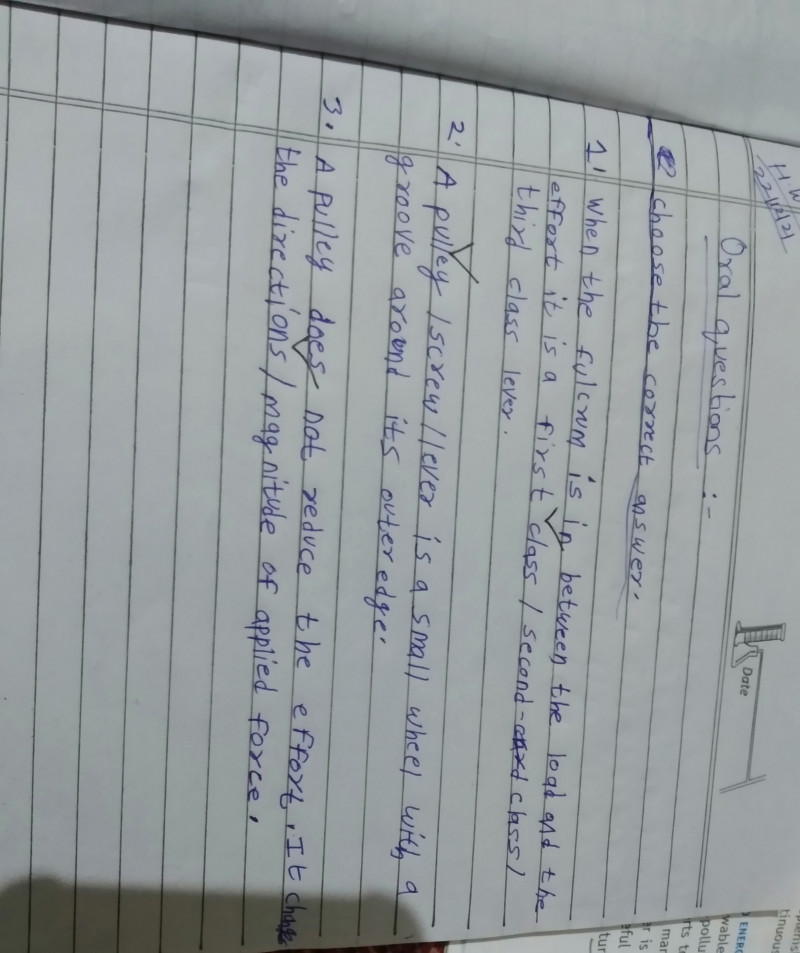 H.W
22/12/21
Date
Oral questions :-
choose the correct answer.
1' When the fulcrum is in between the load and the
effort it is a first class / second class /
third class lever.
2. A pulley /screw/lever is a small wheel with a
groove around its outer edge.
3. A pulley does not reduce the effort. It
the directions / magnitude of applied force.
tinuous
ENERG
wable
pollu
rts t
mar
er is
eful
tur